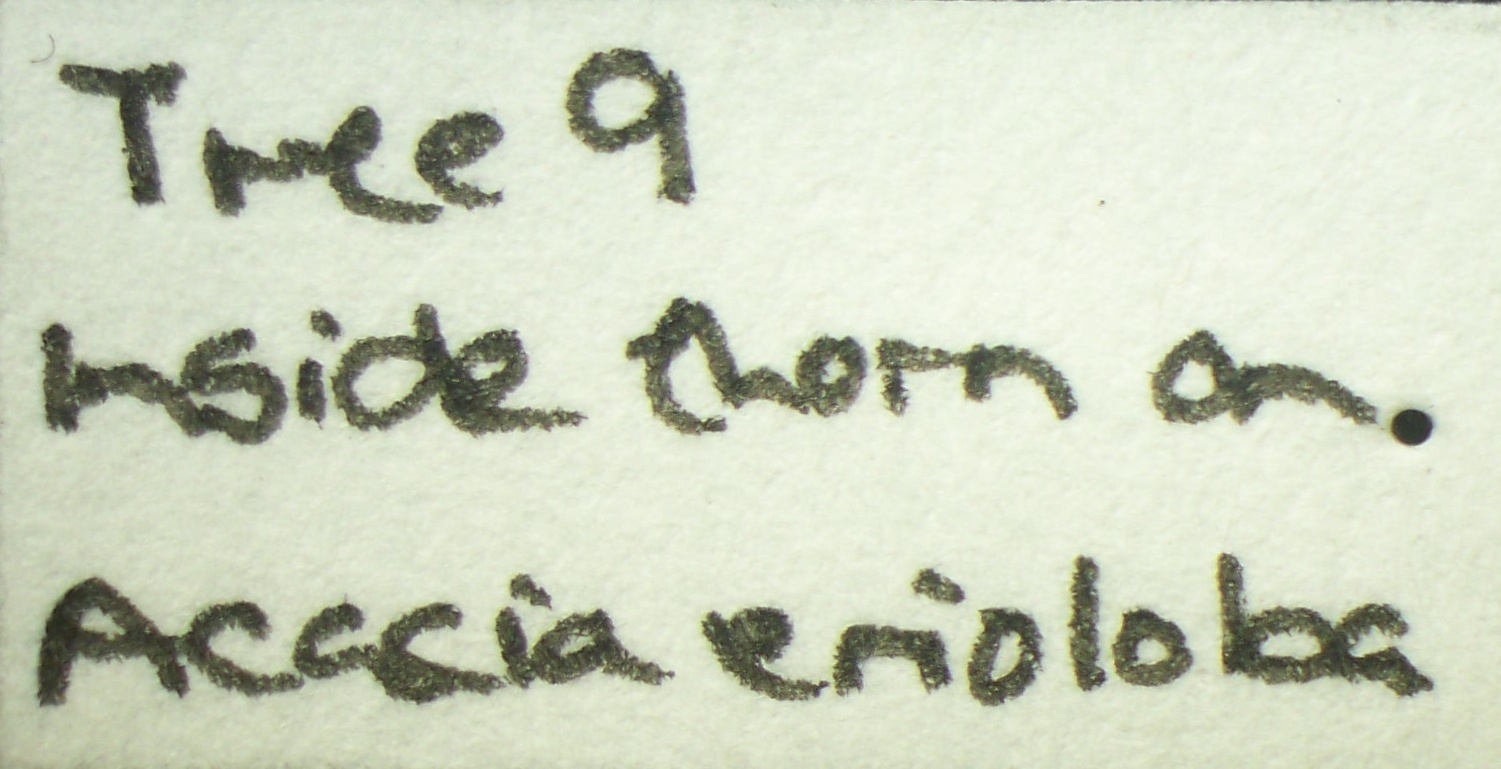 Tree 9
Inside thorn on
Acacia erioloba